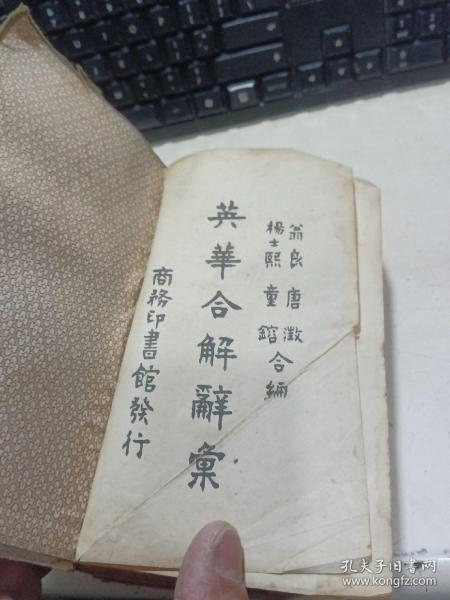 翁良 唐澂
楊士熙 童鎔 合編
英華合解辭彙
商務印書館發行
孔夫子旧书网
www.kongfz.com